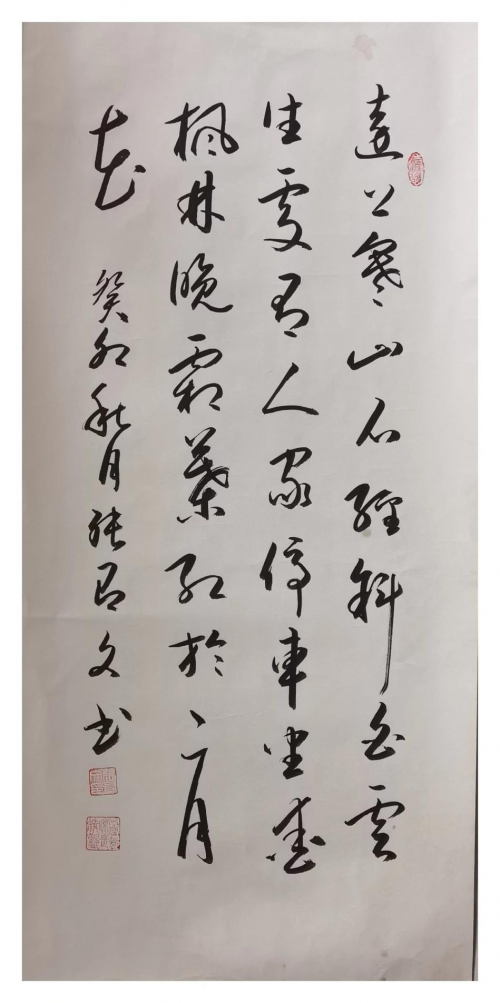 遠上寒山石經斜白雲
生處有人家停車坐愛
枫林晚霜葉紅於二月
花
癸卯秋月張文書